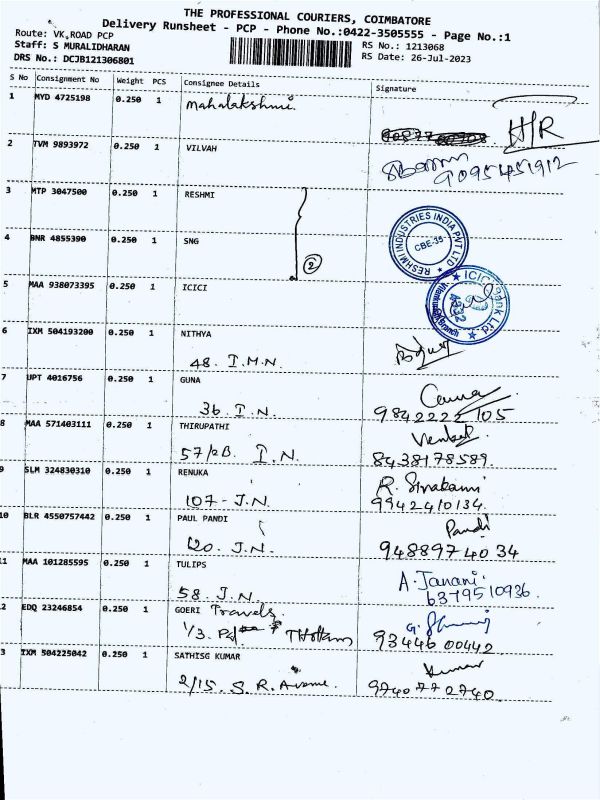 THE PROFESSIONAL COURIERS, COIMBATORE
Delivery Runsheet - PCP - Phone No.:0422-3505555 - Page No.:1
Route: VK.ROAD PCP
Staff: S MURALIDHARAN
DRS No.: DCJB121306801
RS No.: 1213068
RS Date: 26-Jul-2023
S No Consignment No Weight PCS Consignee Details Signature
1 MYD 4725198 0.250 1 Mahalakshmi
H/R
2 TVM 9893972 0.250 1 VILVAH
9095451912
3 MTP 3047500 0.250 1 RESHMI
RESHMI INDUSTRIES INDIA PVT LTD
CBE-35
4 BNR 4855390 0.250 1 SNG
2
5 MAA 938073395 0.250 1 ICICI
ICICI Bank Ltd.
Branch
6 IXM 504193200 0.250 1 NITHYA
48. I.M.N.
7 UPT 4016756 0.250 1 GUNA
36. I.N. 9842222105
8 MAA 571403111 0.250 1 THIRUPATHI
Venkat
57/2B. I.N. 8438178589.
9 SLM 324830310 0.250 1 RENUKA
R. Sivakami
107-J.N. 9942410134.
10 BLR 4550757442 0.250 1 PAUL PANDI
Pandi
120. J.N. 9488974034
11 MAA 101285595 0.250 1 TULIPS
A. Janani.
58. J.N. 6379510936.
12 EDQ 23246854 0.250 1 GOERI Travels.
1/3. THottam 9344600442
13 IXM 504225042 0.250 1 SATHISG KUMAR
Kumar
2/15. S.R. Avenue. 9740772740.